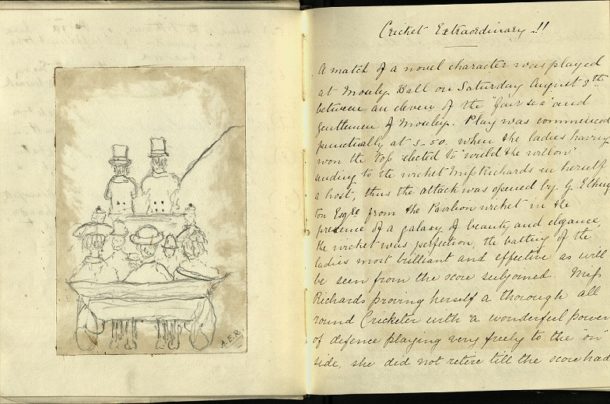 A.E.R.
Cricket Extraordinary!!
A match of a novel character was played
at Mosely Hall on Saturday August 8th
between an eleven of the "fair sex" and
gentlemen of Mosely. Play was commenced
punctually at 3.50. when the ladies having
won the toss elected to "wield the willow"
sending to the wicket Miss Richards in herself
a host, thus the attack was opened by G.
on Esqre from the Pavilion wicket in the
presence of a galaxy of beauty and elegance,
the wicket was perfection, the batting of the
ladies most brilliant and effective as will
be seen from the score subjoined. Miss
Richards proving herself a thorough all
round Cricketer with a wonderful power
of defence playing very freely to the "on"
side, she did not retire till the score had